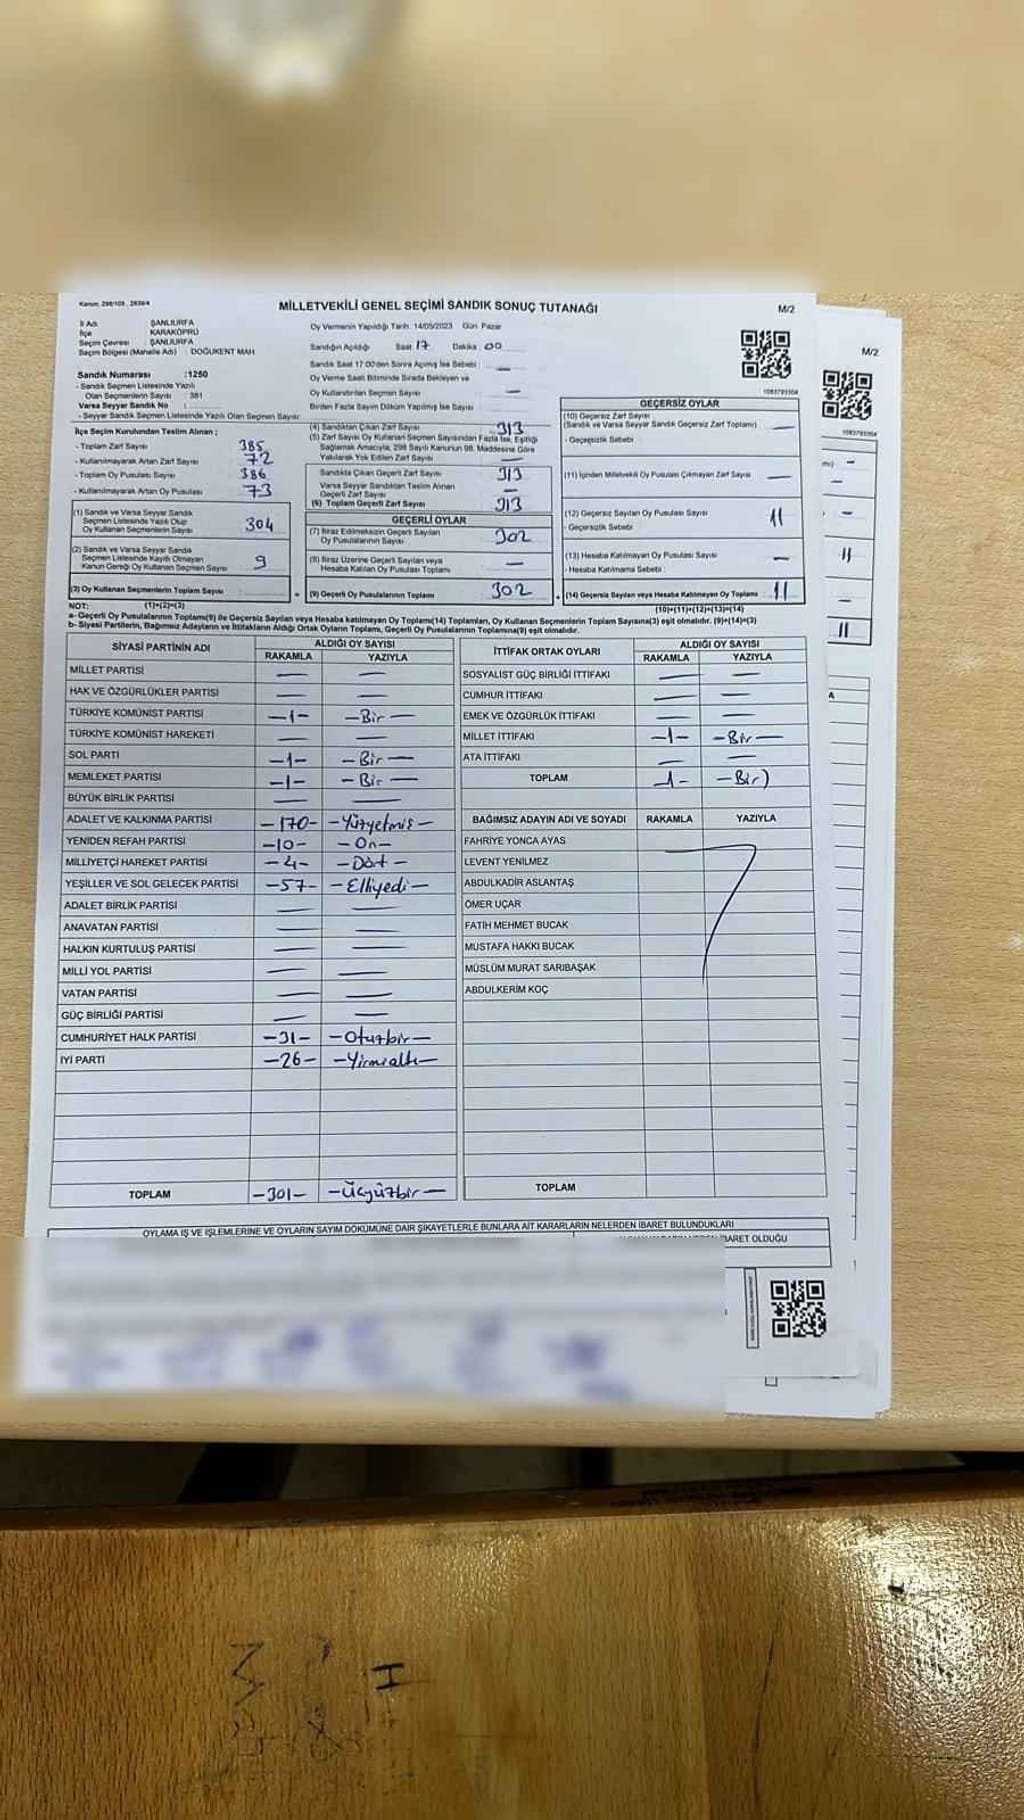 Kanun: 298/105 , 2839/4
MİLLETVEKİLİ GENEL SEÇİMİ SANDIK SONUÇ TUTANAĞI
M/2
M/2
İl Adı : ŞANLIURFA
İlçe : KARAKÖPRÜ
Seçim Çevresi : ŞANLIURFA
Seçim Bölgesi (Mahalle Adı) : DOĞUKENT MAH
Sandık Numarası :1250
- Sandık Seçmen Listesinde Yazılı
Olan Seçmenlerin Sayısı : 381
Varsa Seyyar Sandık No :
- Seyyar Sandık Seçmen Listesinde Yazılı Olan Seçmen Sayısı
Oy Vermenin Yapıldığı Tarih: 14/05/2023 Gün: Pazar
Sandığın Açıldığı Saat 17 Dakika 00
Sandık Saat 17:00'den Sonra Açılmış İse Sebebi —
Oy Verme Saati Bitiminde Sırada Bekleyen ve
Oy Kullandırılan Seçmen Sayısı —
Birden Fazla Sayım Döküm Yapılmış İse Sayısı
1083785504
İlçe Seçim Kurulundan Teslim Alınan ;
- Toplam Zarf Sayısı 385
- Kullanılmayarak Artan Zarf Sayısı 72
- Toplam Oy Pusulası Sayısı 386
- Kullanılmayarak Artan Oy Pusulası 73
(1) Sandık ve Varsa Seyyar Sandık
Seçmen Listesinde Yazılı Olup
Oy Kullanan Seçmenlerin Sayısı 304
(2) Sandık ve Varsa Seyyar Sandık
Seçmen Listesinde Kayıtlı Olmayan
Kanun Gereği Oy Kullanan Seçmen Sayısı 9
(3) Oy Kullanan Seçmenlerin Toplam Sayısı
(1)+(2)=(3)
(4) Sandıktan Çıkan Zarf Sayısı 313
(5) Zarf Sayısı Oy Kullanan Seçmen Sayısından Fazla İse, Eşitliği
Sağlamak Amacıyla, 298 Sayılı Kanunun 98. Maddesine Göre
Yakılarak Yok Edilen Zarf Sayısı —
Sandıkta Çıkan Geçerli Zarf Sayısı 313
Varsa Seyyar Sandıktan Teslim Alınan
Geçerli Zarf Sayısı —
(6) Toplam Geçerli Zarf Sayısı 313
GEÇERLİ OYLAR
(7) İtiraz Edilmeksizin Geçerli Sayılan
Oy Pusulalarının Sayısı 302
(8) İtiraz Üzerine Geçerli Sayılan veya
Hesaba Katılan Oy Pusulası Toplamı —
(9) Geçerli Oy Pusulalarının Toplamı 302
GEÇERSİZ OYLAR
(10) Geçersiz Zarf Sayısı
(Sandık ve Varsa Seyyar Sandık Geçersiz Zarf Toplamı) —
- Geçersizlik Sebebi
(11) İçinden Milletvekili Oy Pusulası Çıkmayan Zarf Sayısı —
(12) Geçersiz Sayılan Oy Pusulası Sayısı 11
- Geçersizlik Sebebi
(13) Hesaba Katılmayan Oy Pusulası Sayısı —
- Hesaba Katılmama Sebebi :
(14) Geçersiz Sayılan veya Hesaba Katılmayan Oy Toplamı 11
(10)+(11)+(12)+(13)=(14)
NOT:
a- Geçerli Oy Pusulalarının Toplamı(9) ile Geçersiz Sayılan veya Hesaba katılmayan Oy Toplamı(14) Toplamları, Oy Kullanan Seçmenlerin Toplam Sayısına(3) eşit olmalıdır. (9)+(14)=(3)
b- Siyasi Partilerin, Bağımsız Adayların ve İttifakların Aldığı Ortak Oyların Toplamı, Geçerli Oy Pusulalarının Toplamına(9) eşit olmalıdır.
SİYASİ PARTİNİN ADI ALDIĞI OY SAYISI
RAKAMLA YAZIYLA
MİLLET PARTİSİ — —
HAK VE ÖZGÜRLÜKLER PARTİSİ — —
TÜRKİYE KOMÜNİST PARTİSİ —1— —Bir—
TÜRKİYE KOMÜNİST HAREKETİ — —
SOL PARTİ —1— —Bir—
MEMLEKET PARTİSİ —1— —Bir—
BÜYÜK BİRLİK PARTİSİ — —
ADALET VE KALKINMA PARTİSİ —170— —Yüzyetmiş—
YENİDEN REFAH PARTİSİ —10— —On—
MİLLİYETÇİ HAREKET PARTİSİ —4— —Dört—
YEŞİLLER VE SOL GELECEK PARTİSİ —57— —Elliyedi—
ADALET BİRLİK PARTİSİ — —
ANAVATAN PARTİSİ — —
HALKIN KURTULUŞ PARTİSİ — —
MİLLİ YOL PARTİSİ — —
VATAN PARTİSİ — —
GÜÇ BİRLİĞİ PARTİSİ — —
CUMHURİYET HALK PARTİSİ —31— —Otuzbir—
İYİ PARTİ —26— —Yirmialtı—
TOPLAM —301— —Üçyüzbir—
İTTİFAK ORTAK OYLARI ALDIĞI OY SAYISI
RAKAMLA YAZIYLA
SOSYALİST GÜÇ BİRLİĞİ İTTİFAKI — —
CUMHUR İTTİFAKI — —
EMEK VE ÖZGÜRLÜK İTTİFAKI — —
MİLLET İTTİFAKI —1— —Bir—
ATA İTTİFAKI — —
TOPLAM 1— —Bir)
BAĞIMSIZ ADAYIN ADI VE SOYADI RAKAMLA YAZIYLA
FAHRİYE YONCA AYAS
LEVENT YENİLMEZ
ABDULKADİR ASLANTAŞ
ÖMER UÇAR
FATİH MEHMET BUCAK
MUSTAFA HAKKI BUCAK
MÜSLÜM MURAT SARIBAŞAK
ABDULKERİM KOÇ
TOPLAM
OYLAMA İŞ VE İŞLEMLERİNE VE OYLARIN SAYIM DÖKÜMÜNE DAİR ŞİKAYETLERLE BUNLARA AİT KARARLARIN NELERDEN İBARET BULUNDUKLARI
İBARET OLDUĞU
1083785504
11
11